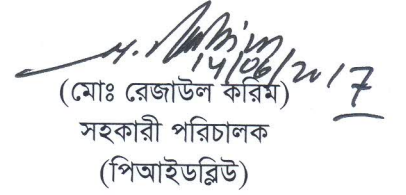 14/06/2017
(মোঃ রেজাউল করিম)
সহকারী পরিচালক
(পিআইডব্লিউ)